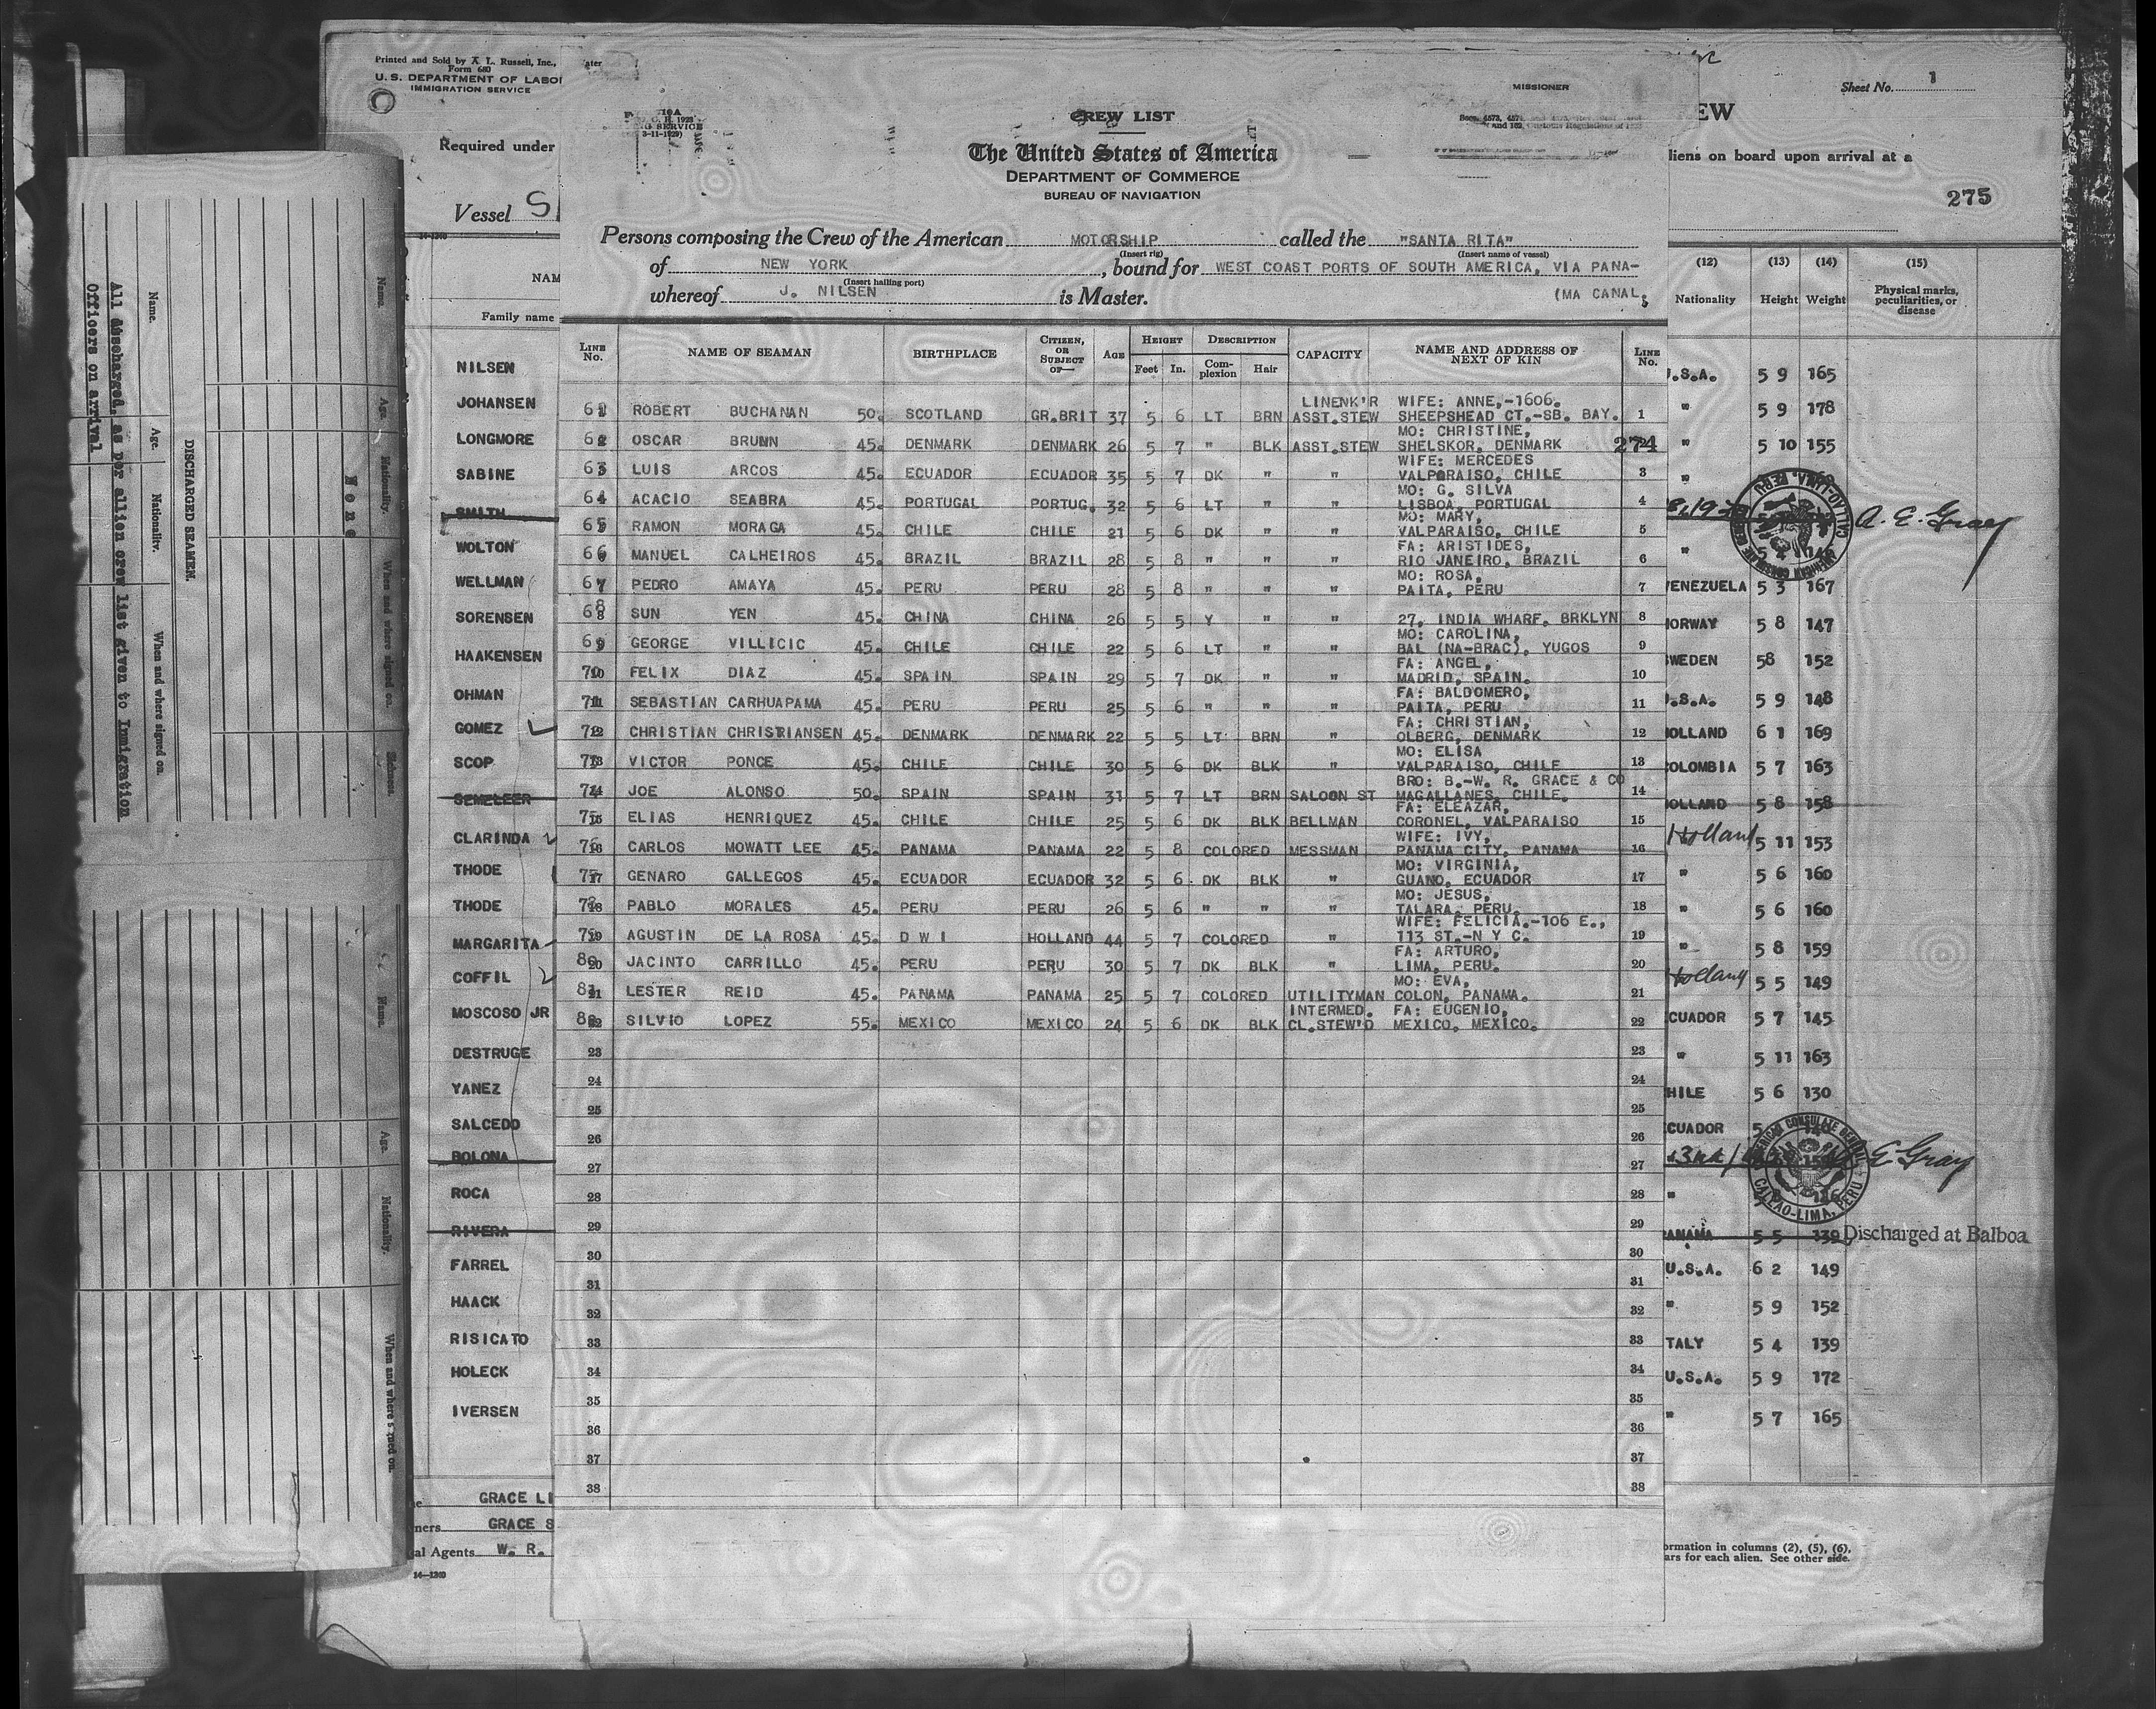 Printed and Sold by A. L. Russell, Inc.,
Form 680
U.S. DEPARTMENT OF LABOR
IMMIGRATION SERVICE
Required under
Vessel S
NAM
Family name
NILSEN
JOHANSEN
LONGMORE
SABINE
SMITH
WOLTON
WELLMAN
SORENSEN
HAAKENSEN
OHMAN
GOMEZ
SCOP
SEMELEER
CLARINDA
THODE
THODE
MARGARITA
COFFIL
MOSCOSO JR
DESTRUGE
YANEZ
SALCEDO
BOLONA
ROCA
RIVERA
FARREL
HAACK
RISICATO
HOLECK
IVERSEN
GRACE LI
ners GRACE S
al Agents W. R.
14-1240
All discharged, as per allien crew list given to Immigration
Officers on arrival
DISCHARGED SEAMEN.
Name. Age. Nationality. When and where signed on.
None
Name. Age. Nationality. When and where signed on. Sickness.
Name. Age. Nationality. When and where signed on.
CREW LIST
The United States of America
DEPARTMENT OF COMMERCE
BUREAU OF NAVIGATION
MISSIONER
Persons composing the Crew of the American MOTORSHIP called the "SANTA RITA"
(Insert rig) (Insert name of vessel)
of NEW YORK, bound for WEST COAST PORTS OF SOUTH AMERICA, VIA PANA-
(Insert hailing port)
whereof J. NILSEN is Master. (MA CANAL,
LINE No. NAME OF SEAMAN BIRTHPLACE CITIZEN, OR SUBJECT OF— AGE HEIGHT Feet In. DESCRIPTION Complexion Hair CAPACITY NAME AND ADDRESS OF NEXT OF KIN LINE No.
LINENK'R WIFE: ANNE,-1606.
61 ROBERT BUCHANAN 50. SCOTLAND GR.BRIT 37 5 6 LT BRN ASST.STEW SHEEPSHEAD CT.-SB. BAY. 1
MO: CHRISTINE,
62 OSCAR BRUNN 45. DENMARK DENMARK 26 5 7 " BLK ASST.STEW SHELSKOR, DENMARK 274
WIFE: MERCEDES
63 LUIS ARCOS 45. ECUADOR ECUADOR 35 5 7 DK " " VALPORAISO, CHILE 3
MO: G. SILVA
64 ACACIO SEABRA 45. PORTUGAL PORTUG. 32 5 6 LT " " LISBOA, PORTUGAL 4
MO: MARY,
65 RAMON MORAGA 45. CHILE CHILE 21 5 6 DK " " VALPARAISO, CHILE 5
FA: ARISTIDES,
66 MANUEL CALHEIROS 45. BRAZIL BRAZIL 28 5 8 " " " RIO JANEIRO, BRAZIL 6
MO: ROSA,
67 PEDRO AMAYA 45. PERU PERU 28 5 8 " " " PAITA, PERU 7
68 SUN YEN 45. CHINA CHINA 26 5 5 Y " " 27, INDIA WHARF, BRKLYN 8
MO: CAROLINA,
69 GEORGE VILLICIC 45. CHILE CHILE 22 5 6 LT " " BAL (NA-BRAC), YUGOS 9
FA: ANGEL,
70 FELIX DIAZ 45. SPAIN SPAIN 29 5 7 DK " " MADRID, SPAIN. 10
FA: BALDOMERO,
71 SEBASTIAN CARHUAPAMA 45. PERU PERU 25 5 6 " " " PAITA, PERU 11
FA: CHRISTIAN,
72 CHRISTIAN CHRISTIANSEN 45. DENMARK DENMARK 22 5 5 LT BRN " OLBERG, DENMARK 12
MO: ELISA
73 VICTOR PONCE 45. CHILE CHILE 30 5 6 DK BLK " VALPARAISO, CHILE 13
BRO: B.-W. R. GRACE & CO
74 JOE ALONSO 50. SPAIN SPAIN 31 5 7 LT BRN SALOON ST MAGALLANES, CHILE. 14
FA: ELEAZAR,
75 ELIAS HENRIQUEZ 45. CHILE CHILE 25 5 6 DK BLK BELLMAN CORONEL, VALPARAISO 15
WIFE: IVY,
76 CARLOS MOWATT LEE 45. PANAMA PANAMA 22 5 8 COLORED MESSMAN PANAMA CITY, PANAMA 16
MO: VIRGINIA,
77 GENARO GALLEGOS 45. ECUADOR ECUADOR 32 5 6 DK BLK " GUANO, ECUADOR 17
MO: JESUS,
78 PABLO MORALES 45. PERU PERU 26 5 6 " " " TALARA, PERU. 18
WIFE: FELICIA.-106 E.,
79 AGUSTIN DE LA ROSA 45. D W I HOLLAND 44 5 7 COLORED " 113 ST.-N Y C. 19
FA: ARTURO,
80 JACINTO CARRILLO 45. PERU PERU 30 5 7 DK BLK " LIMA, PERU. 20
MO: EVA,
81 LESTER REID 45. PANAMA PANAMA 25 5 7 COLORED UTILITYMAN COLON, PANAMA. 21
INTERMED. FA: EUGENIO,
82 SILVIO LOPEZ 55. MEXICO MEXICO 24 5 6 DK BLK CL.STEW'D MEXICO, MEXICO. 22
23 23
24 24
25 25
26 26
27 27
28 28
29 29
30 30
31 31
32 32
33 33
34 34
35 35
36 36
37 37
38 38
Sheet No. 1
EW
liens on board upon arrival at a
275
(12) (13) (14) (15)
Nationality Height Weight Physical marks, peculiarities, or disease
U.S.A. 5 9 165
" 5 9 178
" 5 10 155
"
A. E. Gray
"
VENEZUELA 5 3 167
NORWAY 5 8 147
SWEDEN 58 152
U.S.A. 5 9 148
HOLLAND 6 1 169
COLOMBIA 5 7 163
HOLLAND 5 8 158
Holland 5 11 153
" 5 6 160
" 5 6 160
" 5 8 159
Holland 5 5 149
ECUADOR 5 7 145
" 5 11 163
CHILE 5 6 130
ECUADOR 5
AMERICAN CONSULATE GENERAL CALLAO-LIMA, PERU
E. Gray
"
PANAMA 5 5 139 Discharged at Balboa
U.S.A. 6 2 149
" 5 9 152
ITALY 5 4 139
U.S.A. 5 9 172
" 5 7 165
ormation in columns (2), (5), (6),
ars for each alien. See other side.